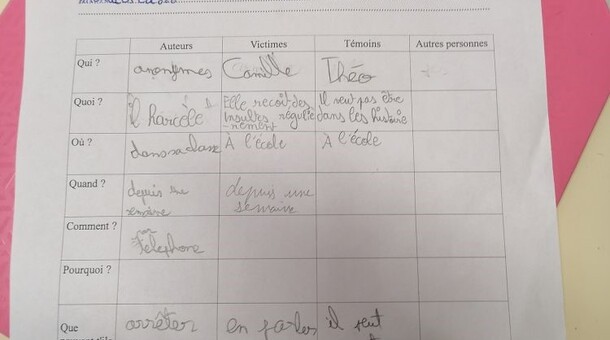 Auteurs Victimes Témoins Autres personnes
Qui ? anonymes Camille Théo
Quoi ? il harcèle Elle recoit des Il veut pas être
insultes régulie dans les histoire
-rement
Où ? dans sa classe À l'école À l'école
Quand ? depuis une depuis une
semaine semaine
Comment ?
télephone
Pourquoi ?
Que arrêter en parler il veut